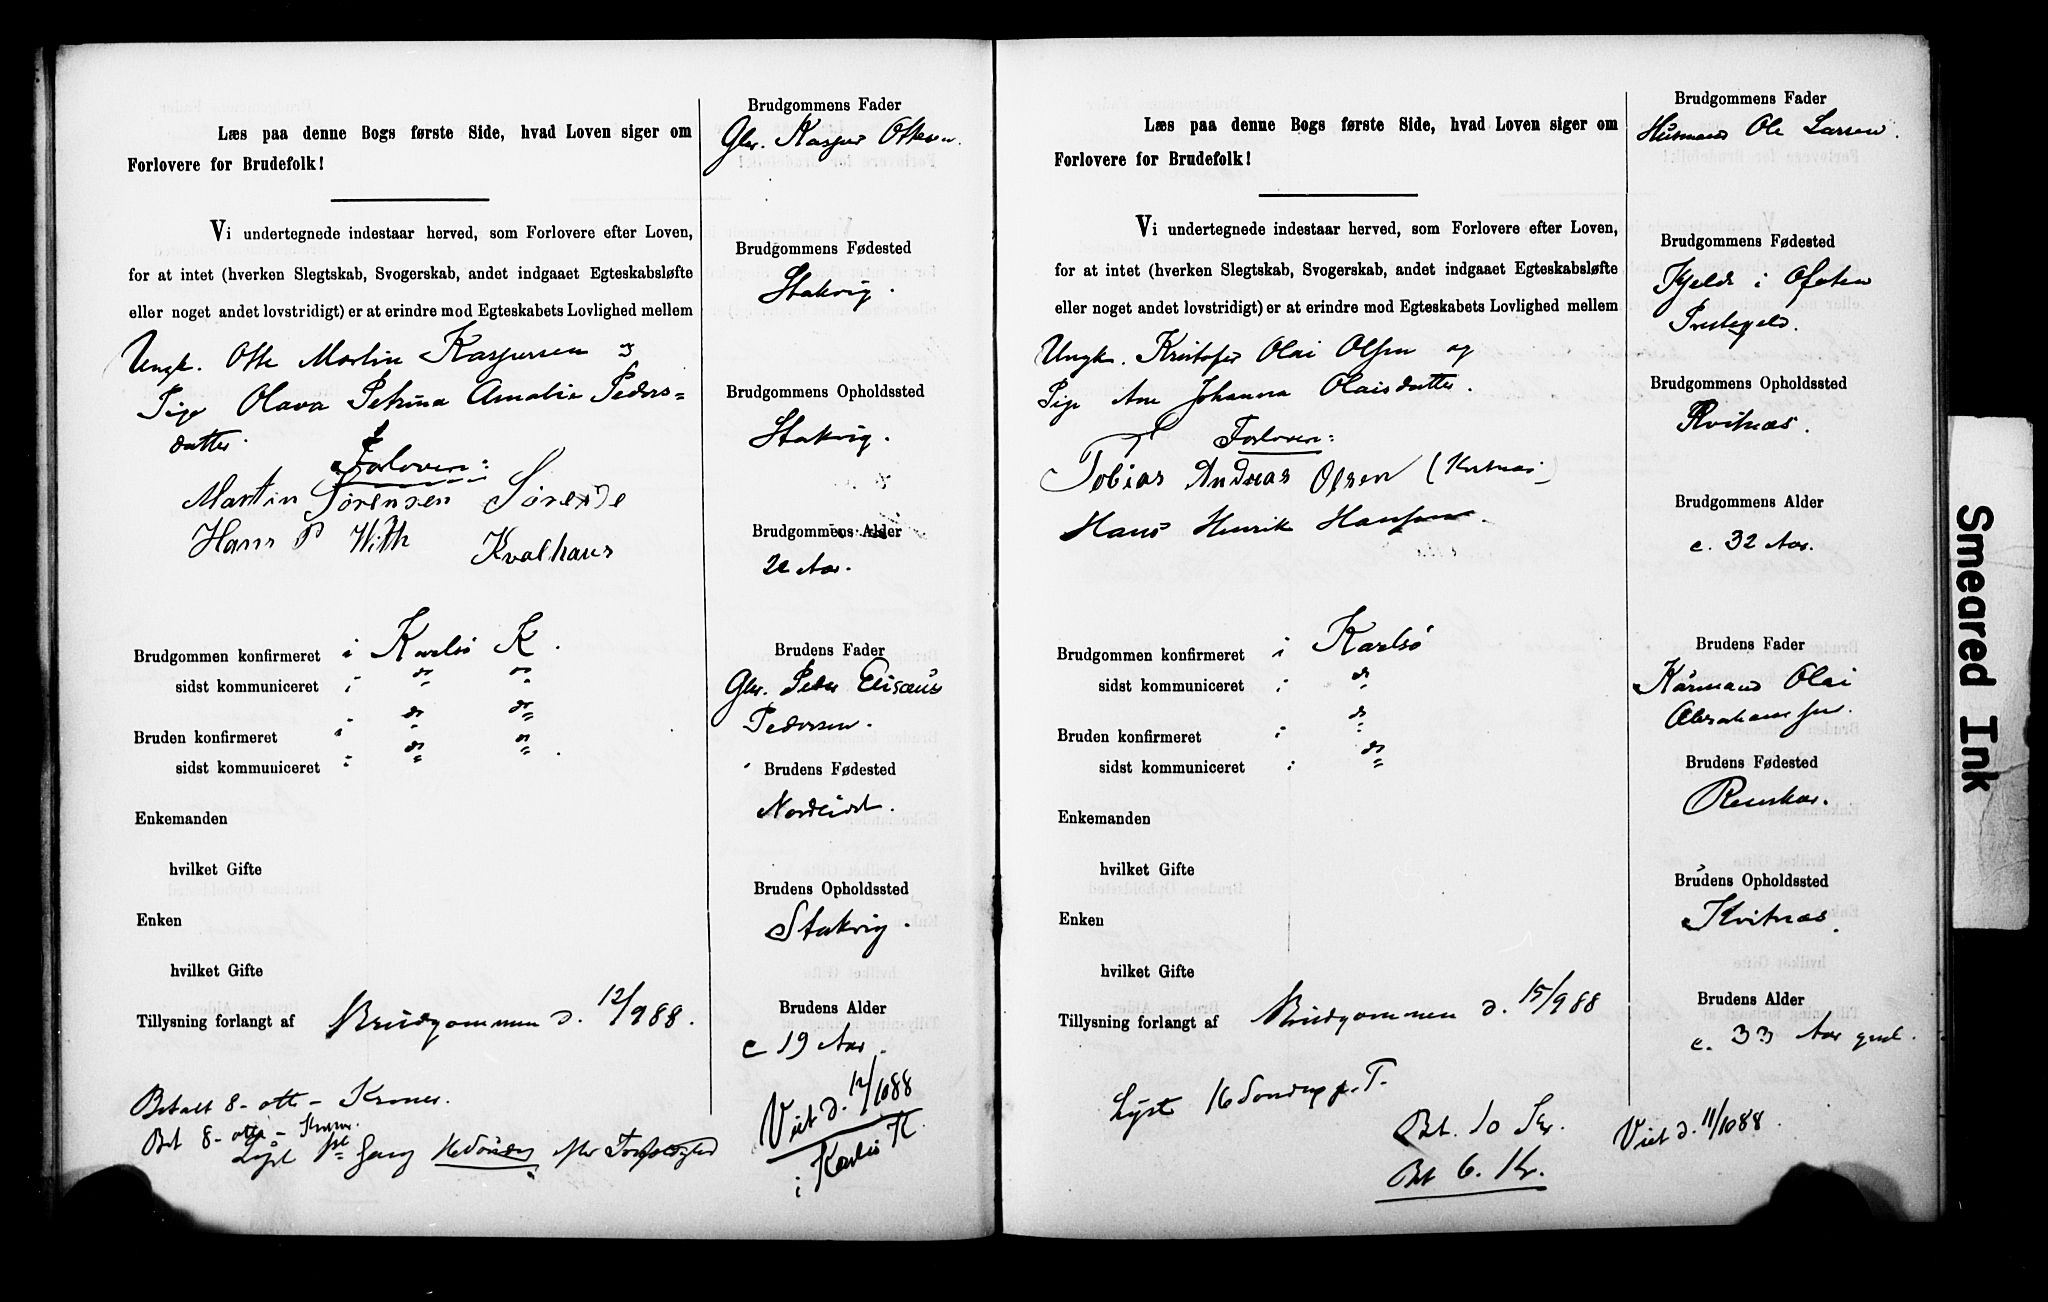 Læs paa denne Bogs første Side, hvad Loven siger om
Forlovere for Brudefolk!
Vi undertegnede indestaar herved, som Forlovere efter Loven,
for at intet (hverken Slegtskab, Svogerskab, andet indgaaet Egteskabsløfte
eller noget andet lovstridigt) er at erindre mod Egteskabets Lovlighed mellem
Ungk. Otto Martin Kaspersen og
Pige Olava Petrina Amalie Peders=
datter.
Forlovere:
Martin Sørensen
Hans P With Kvalhaus
Brudgommen konfirmeret i Karlsö K.
sidst kommuniceret i do do
Bruden konfirmeret i do do
sidst kommuniceret i do do.
Enkemanden
hvilket Gifte
Enken
hvilket Gifte
Tillysning forlangt af Brudgommen d. 12/9 88.
Betalt 8 - otte - Kroner.
Bet 8 - otte - Kroner.
Lyst Gang efter
Brudgommens Fader
Gbr. Kasper Ottesen.
Brudgommens Fødested
Stakvig.
Brudgommens Opholdssted
Stakvig.
Brudgommens Alder
Aar.
Brudens Fader
Gbr. Peder Elisæus
Pedersen.
Brudens Fødested
Nordeidet.
Brudens Opholdssted
Stakvig.
Brudens Alder
c 19 Aar.
Viet d. 12/10 88
i Karlsö K.
Læs paa denne Bogs første Side, hvad Loven siger om
Forlovere for Brudefolk!
Vi undertegnede indestaar herved, som Forlovere efter Loven,
for at intet (hverken Slegtskab, Svogerskab, andet indgaaet Egteskabsløfte
eller noget andet lovstridigt) er at erindre mod Egteskabets Lovlighed mellem
Ungk. Kristofer Olai Olsen og
Pige Ane Johanna Olaisdatter.
Forlovere:
Tobias Andreas Olsen (Kvitnæs)
Hans Henrik Hansen.
Brudgommen konfirmeret i Karlsö
sidst kommuniceret i do
Bruden konfirmeret i do
sidst kommuniceret i do
Enkemanden
hvilket Gifte
Enken
hvilket Gifte
Tillysning forlangt af Brudgommen d. 15/9 88
Lyst
Bet. 10 Kr.
Bet 6. Kr.
Brudgommens Fader
Husmand Ole Larsen.
Brudgommens Fødested
Kjelde i Ofoten
Prestegeld.
Brudgommens Opholdssted
Kvitnæs.
Brudgommens Alder
c. 32 Aar.
Brudens Fader
Kårmand Olai
Abrahamsen.
Brudens Fødested
Brudens Opholdssted
Kvitnæs.
Brudens Alder
c. 33 Aar gml.
Viet d. 11/10 88.
Smeared Ink